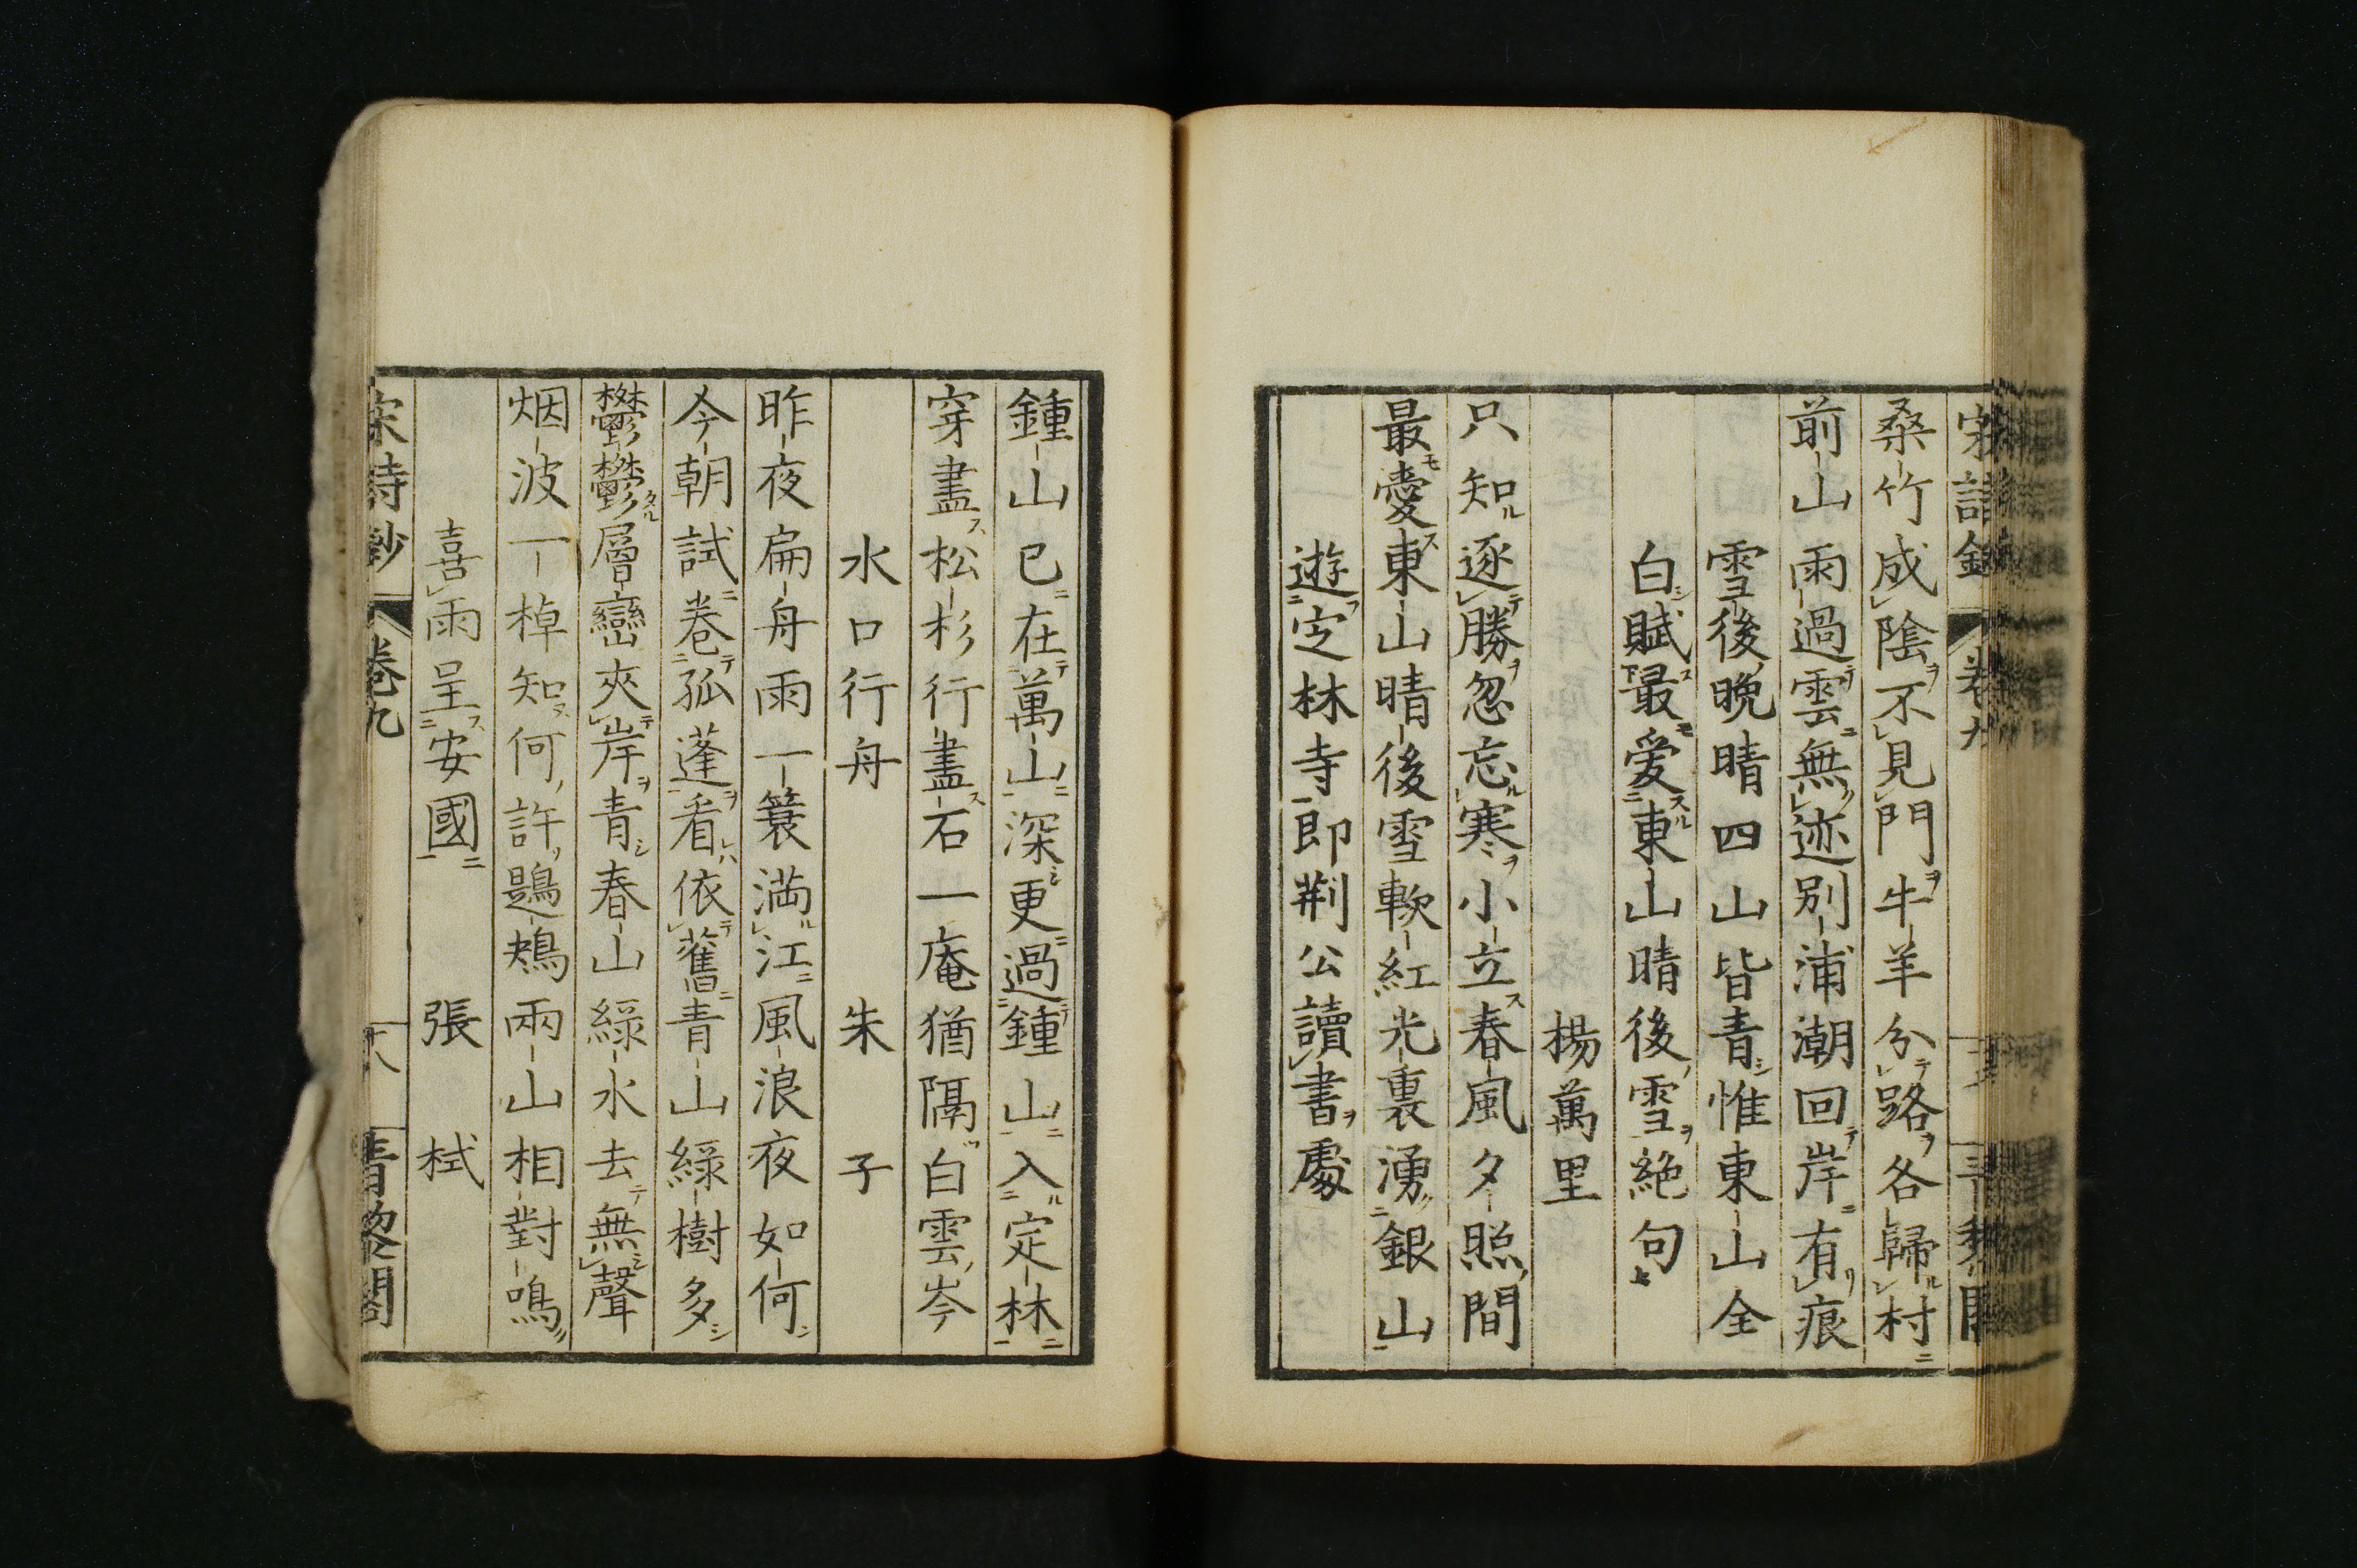 宋詩鈔 卷九
桑竹成陰不見門牛羊分路各歸村
前山雨過雲無迹別浦潮回岸有痕
雪後晚晴四山皆青惟東山全
白賦最愛東山晴後雪絕句
楊萬里
只知逐勝忽忘寒小立春風夕照間
最愛東山晴後雪軟紅光裏湧銀山
遊定林寺即荆公讀書處
鍾山已在萬山深更過鍾山入定林
穿盡松杉行盡石一庵猶隔白雲岑
水口行舟 朱子
昨夜扁舟雨一簑満江風浪夜如何
今朝試卷孤蓬看依舊青山綠樹多
鬱鬱層巒夾岸青春山綠水去無聲
烟波一棹知何許鶗鴂兩山相對鳴
喜雨呈安國 張栻
宋詩鈔 卷九 十八 青黎閣